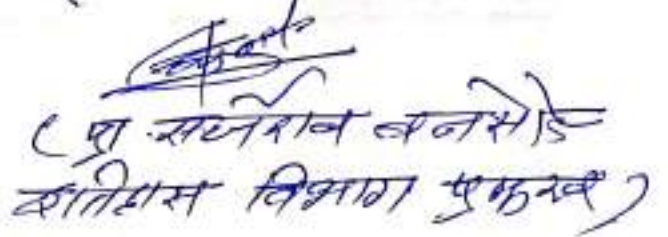 ( प्रा. सर्जेराव बनसोडे
इतिहास विभाग प्रमुख )